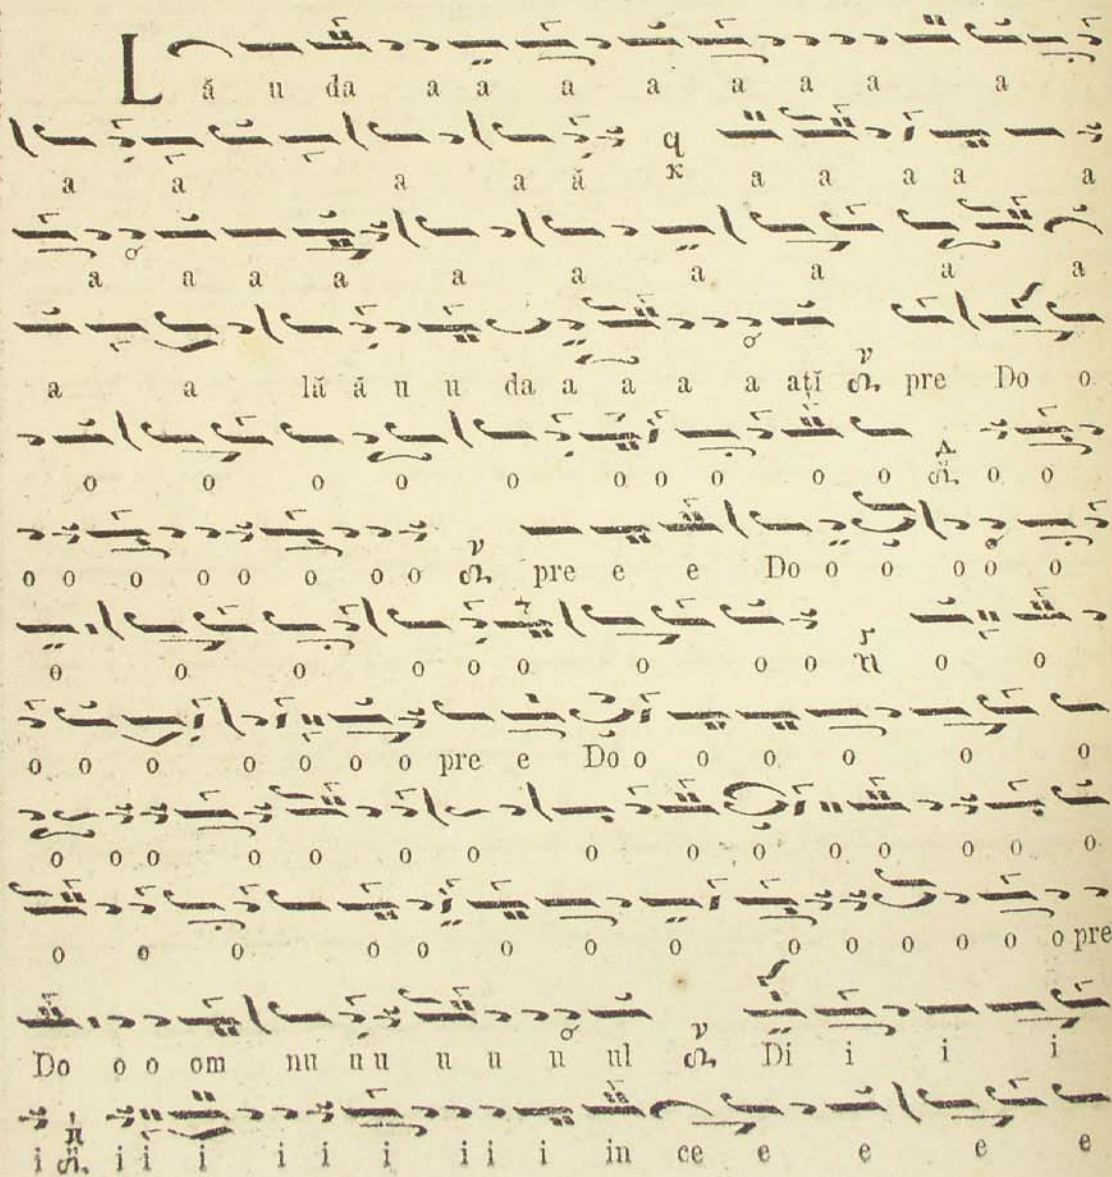 L ă u da a a a a a a a a
a a a a ă q κ a a a a a
a a a a a a a a a a
a a lă ă u u da a a a a ațĭ ν pre Do o
o o o o o o o o o o o o
o o o o o o o o ν pre e e Do o o o o o
o o o o o o o o o ϛ π o o
o o o o o o o pre e Do o o o o o o
o o o o o o o o o o o o o o o
o o o o o o o o o o o o o o pre
Do o o om nu nu u u u ul ν Di i i i
i π i i i i i i i i i in ce e e e e